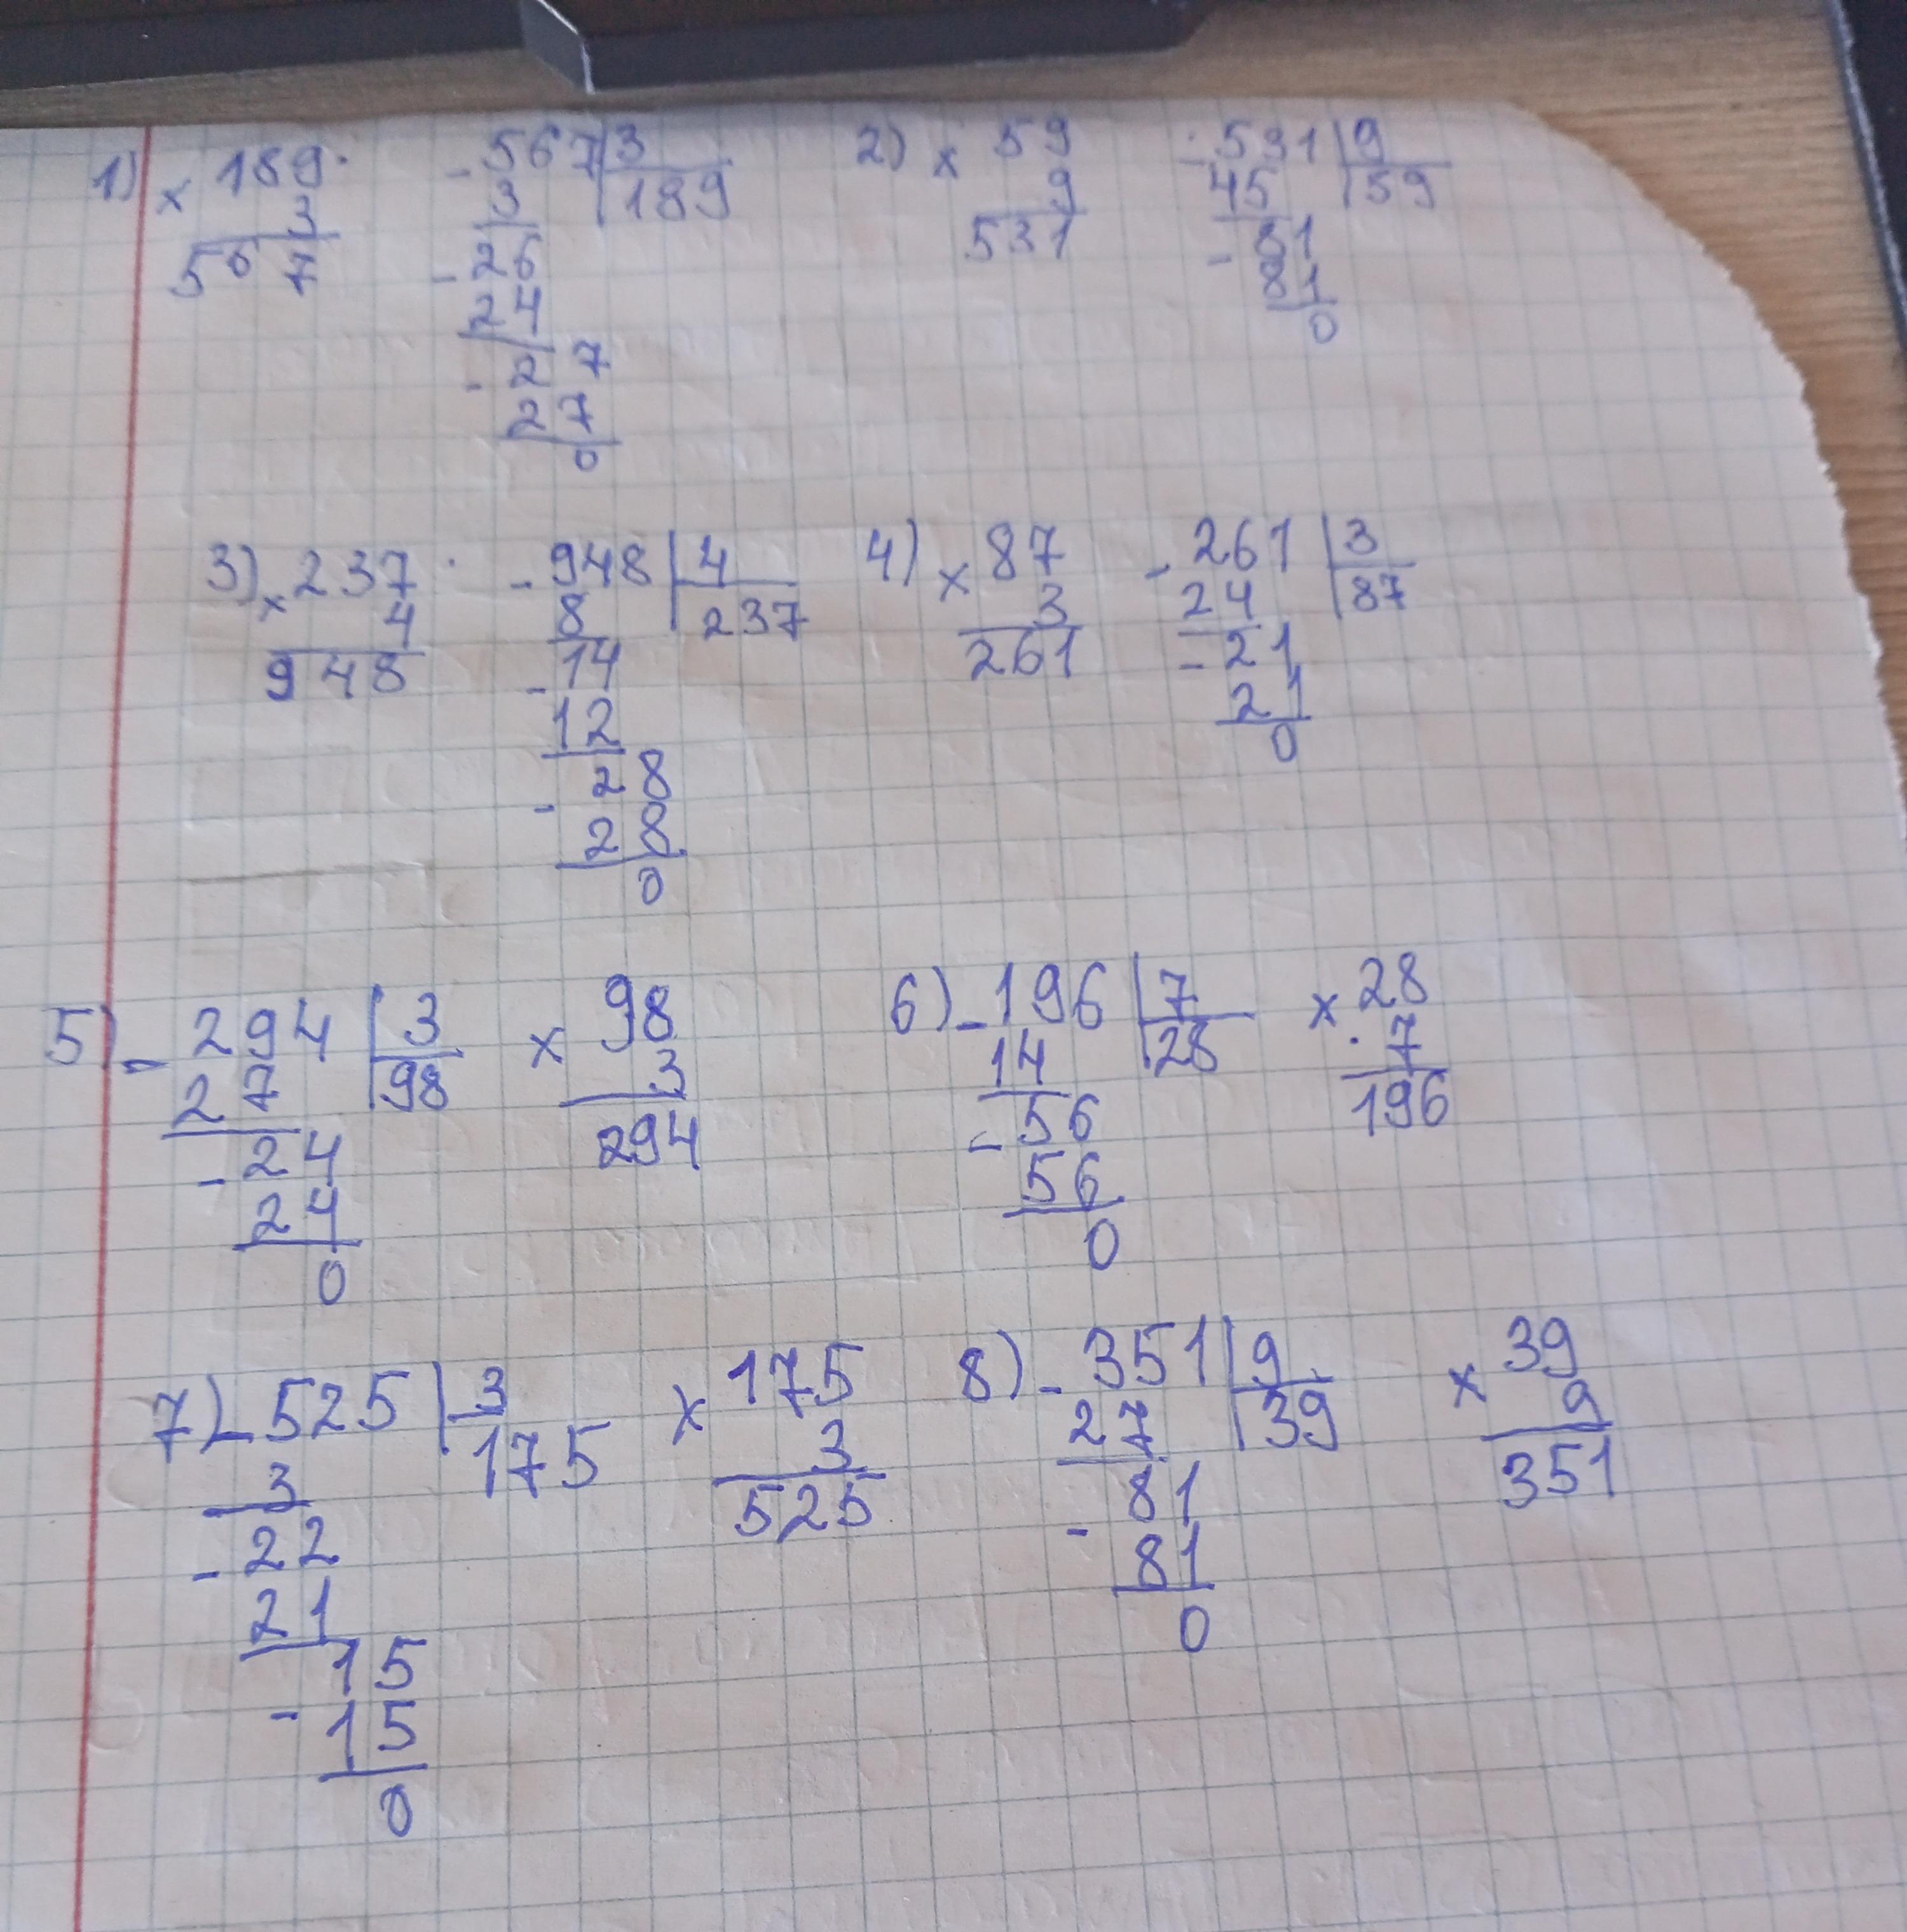 1) × 189 - 567 | 3 2) × 59 - 531 | 9
3 3 | 189 9 45 | 59
567 - 26 531 - 81
24 81
- 27 0
27
0
3) × 237 - 948 | 4 4) × 87 - 261 | 3
4 8 | 237 3 24 | 87
948 - 14 261 - 21
12 21
- 28 0
28
0
5) - 294 | 3 × 98 6) - 196 | 7 × 28
27 | 98 3 14 | 28 7
- 24 294 - 56 196
24 56
0 0
7) - 525 | 3 × 175 8) - 351 | 9 × 39
3 175 3 27 | 39 9
- 22 525 - 81 351
21 81
- 15 0
15
0